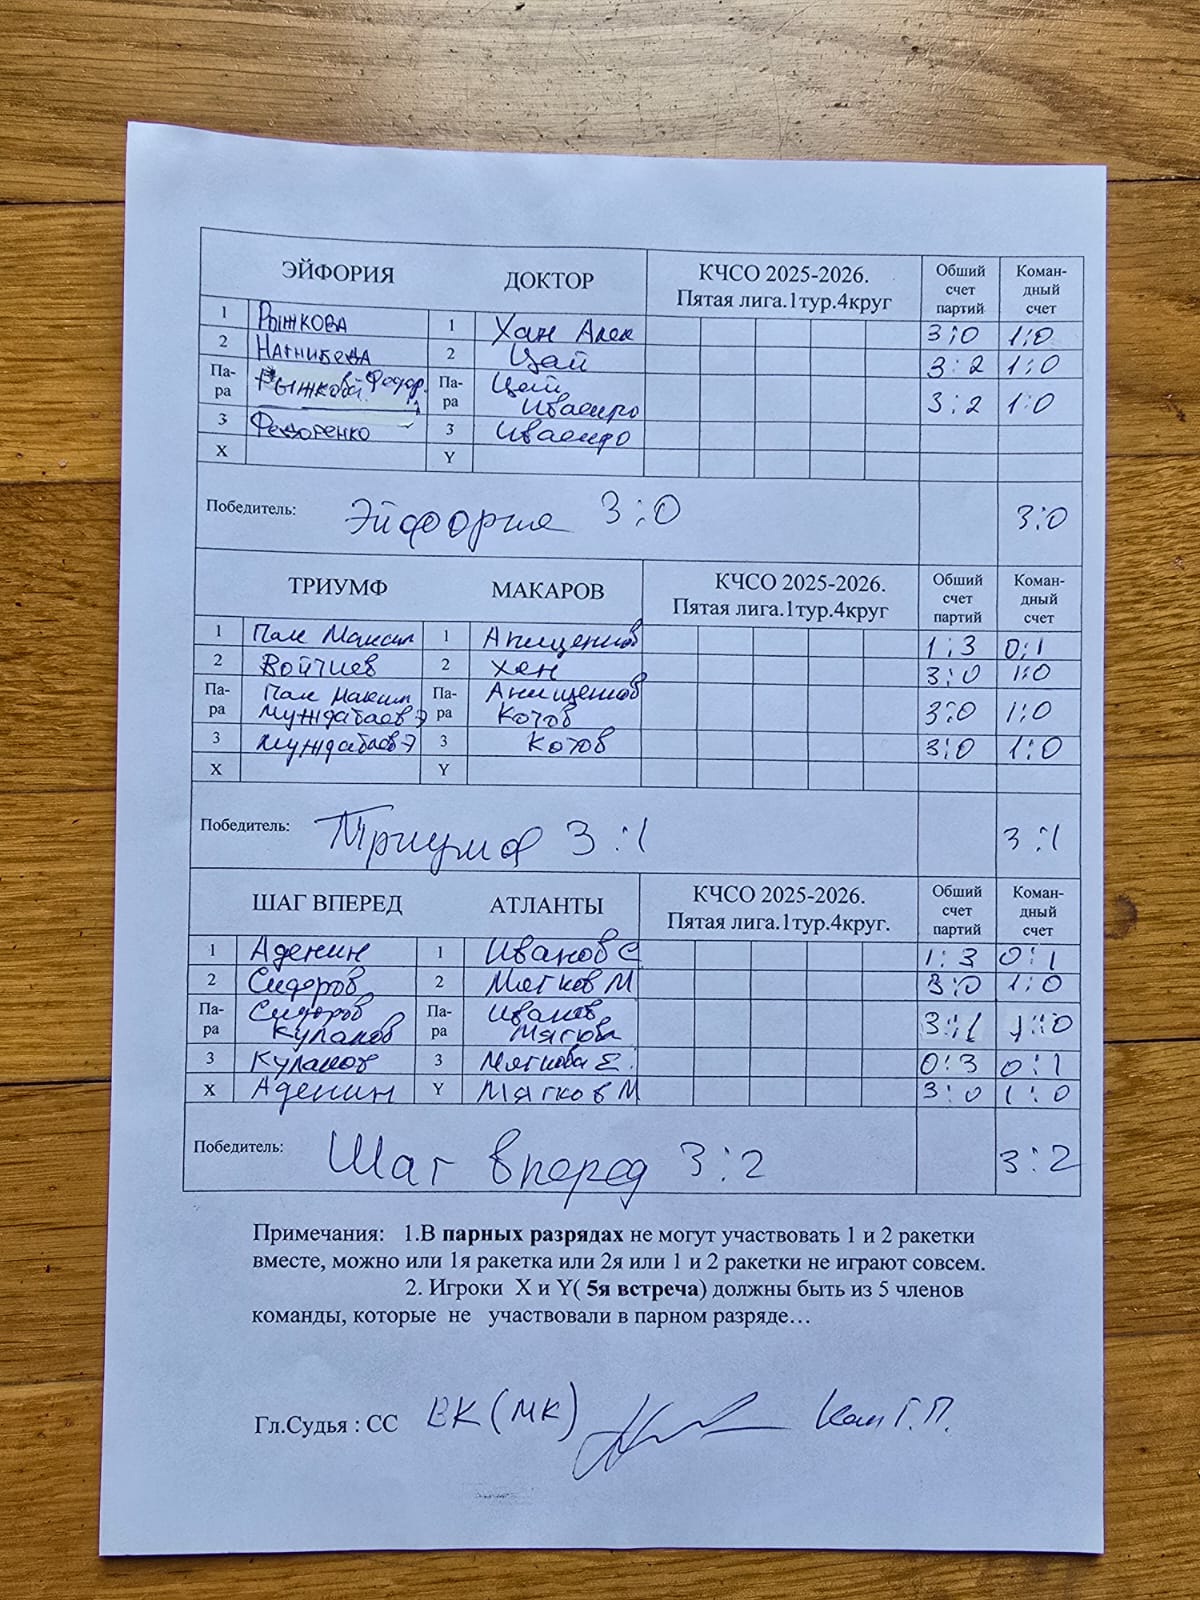 ЭЙФОРИЯ ДОКТОР КЧСО 2025-2026. Пятая лига.1тур.4круг Обший счет партий Коман-дный счет
1 Рыжкова 1 Хан Алек 3:0 1:0
2 Нагнибеда 2 Цай 3:2 1:0
Па-ра Рыжкова Федор. Па-ра Цай 3:2 1:0
3 Федоренко 3
X Y
Победитель: Эйфория 3:0 3:0
ТРИУМФ МАКАРОВ КЧСО 2025-2026. Пятая лига.1тур.4круг Обший счет партий Коман-дный счет
1 Пак Максим 1 Анищенков 1:3 0:1
2 Войчиев 2 Хен 3:0 1:0
Па-ра Пак Максим Муждабаев Э Па-ра Анищенков Котов 3:0 1:0
3 Муждабаев Э 3 Котов 3:0 1:0
X Y
Победитель: Триумф 3:1 3:1
ШАГ ВПЕРЕД АТЛАНТЫ КЧСО 2025-2026. Пятая лига.1тур.4круг. Обший счет партий Коман-дный счет
1 Аденин 1 Иванов С 1:3 0:1
2 Сидоров 2 Мягков М 3:0 1:0
Па-ра Сидоров Кулаков Па-ра Иванов Мягкова 3:1 1:0
3 Кулаков 3 Мягкова Е. 0:3 0:1
X Аденин Y Мягков М 3:0 1:0
Победитель: Шаг вперед 3:2 3:2
Примечания: 1.В парных разрядах не могут участвовать 1 и 2 ракетки
вместе, можно или 1я ракетка или 2я или 1 и 2 ракетки не играют совсем.
2. Игроки X и Y( 5я встреча) должны быть из 5 членов
команды, которые не участвовали в парном разряде…
Гл.Судья : СС ВК (МК) Ким Г.П.